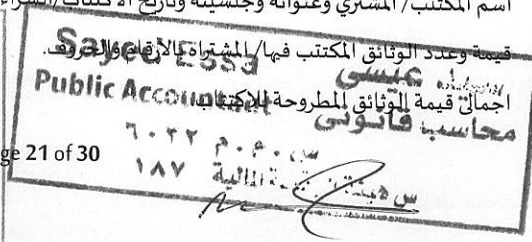 اسم المكتتب/ المشتري وعنوانه وجنسيته وتاريخ الاكتتاب/الشراء
قيمة وعدد الوثائق المكتتب فيها/ المشتراه بالأرقام والحروف.
اجمالي قيمة الوثائق المطروحة للاكتتاب
Sayed Essa
عيسى
Public Accountant
محاسب قانوني
س.م.م ٦٠٢٢
س هيئة الرقابة المالية ١٨٧
ge 21 of 30